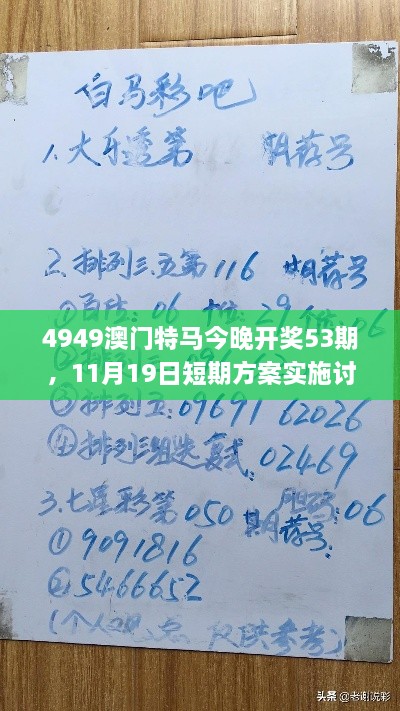 伯马彩吧
1.大乐透第 期荐号
2.排列三.五第116 期荐号
①百位:06 十位:29 个位:06
4949澳门特马今晚开奖53期
，11月19日短期方案实施讨
③排列五:09691 62026
④排列三组选复式:02469
3.七星彩第050期荐号: 胆码:06
①9091816
②5466652
(个人观点 仅供参考)
头条 @老谢说彩